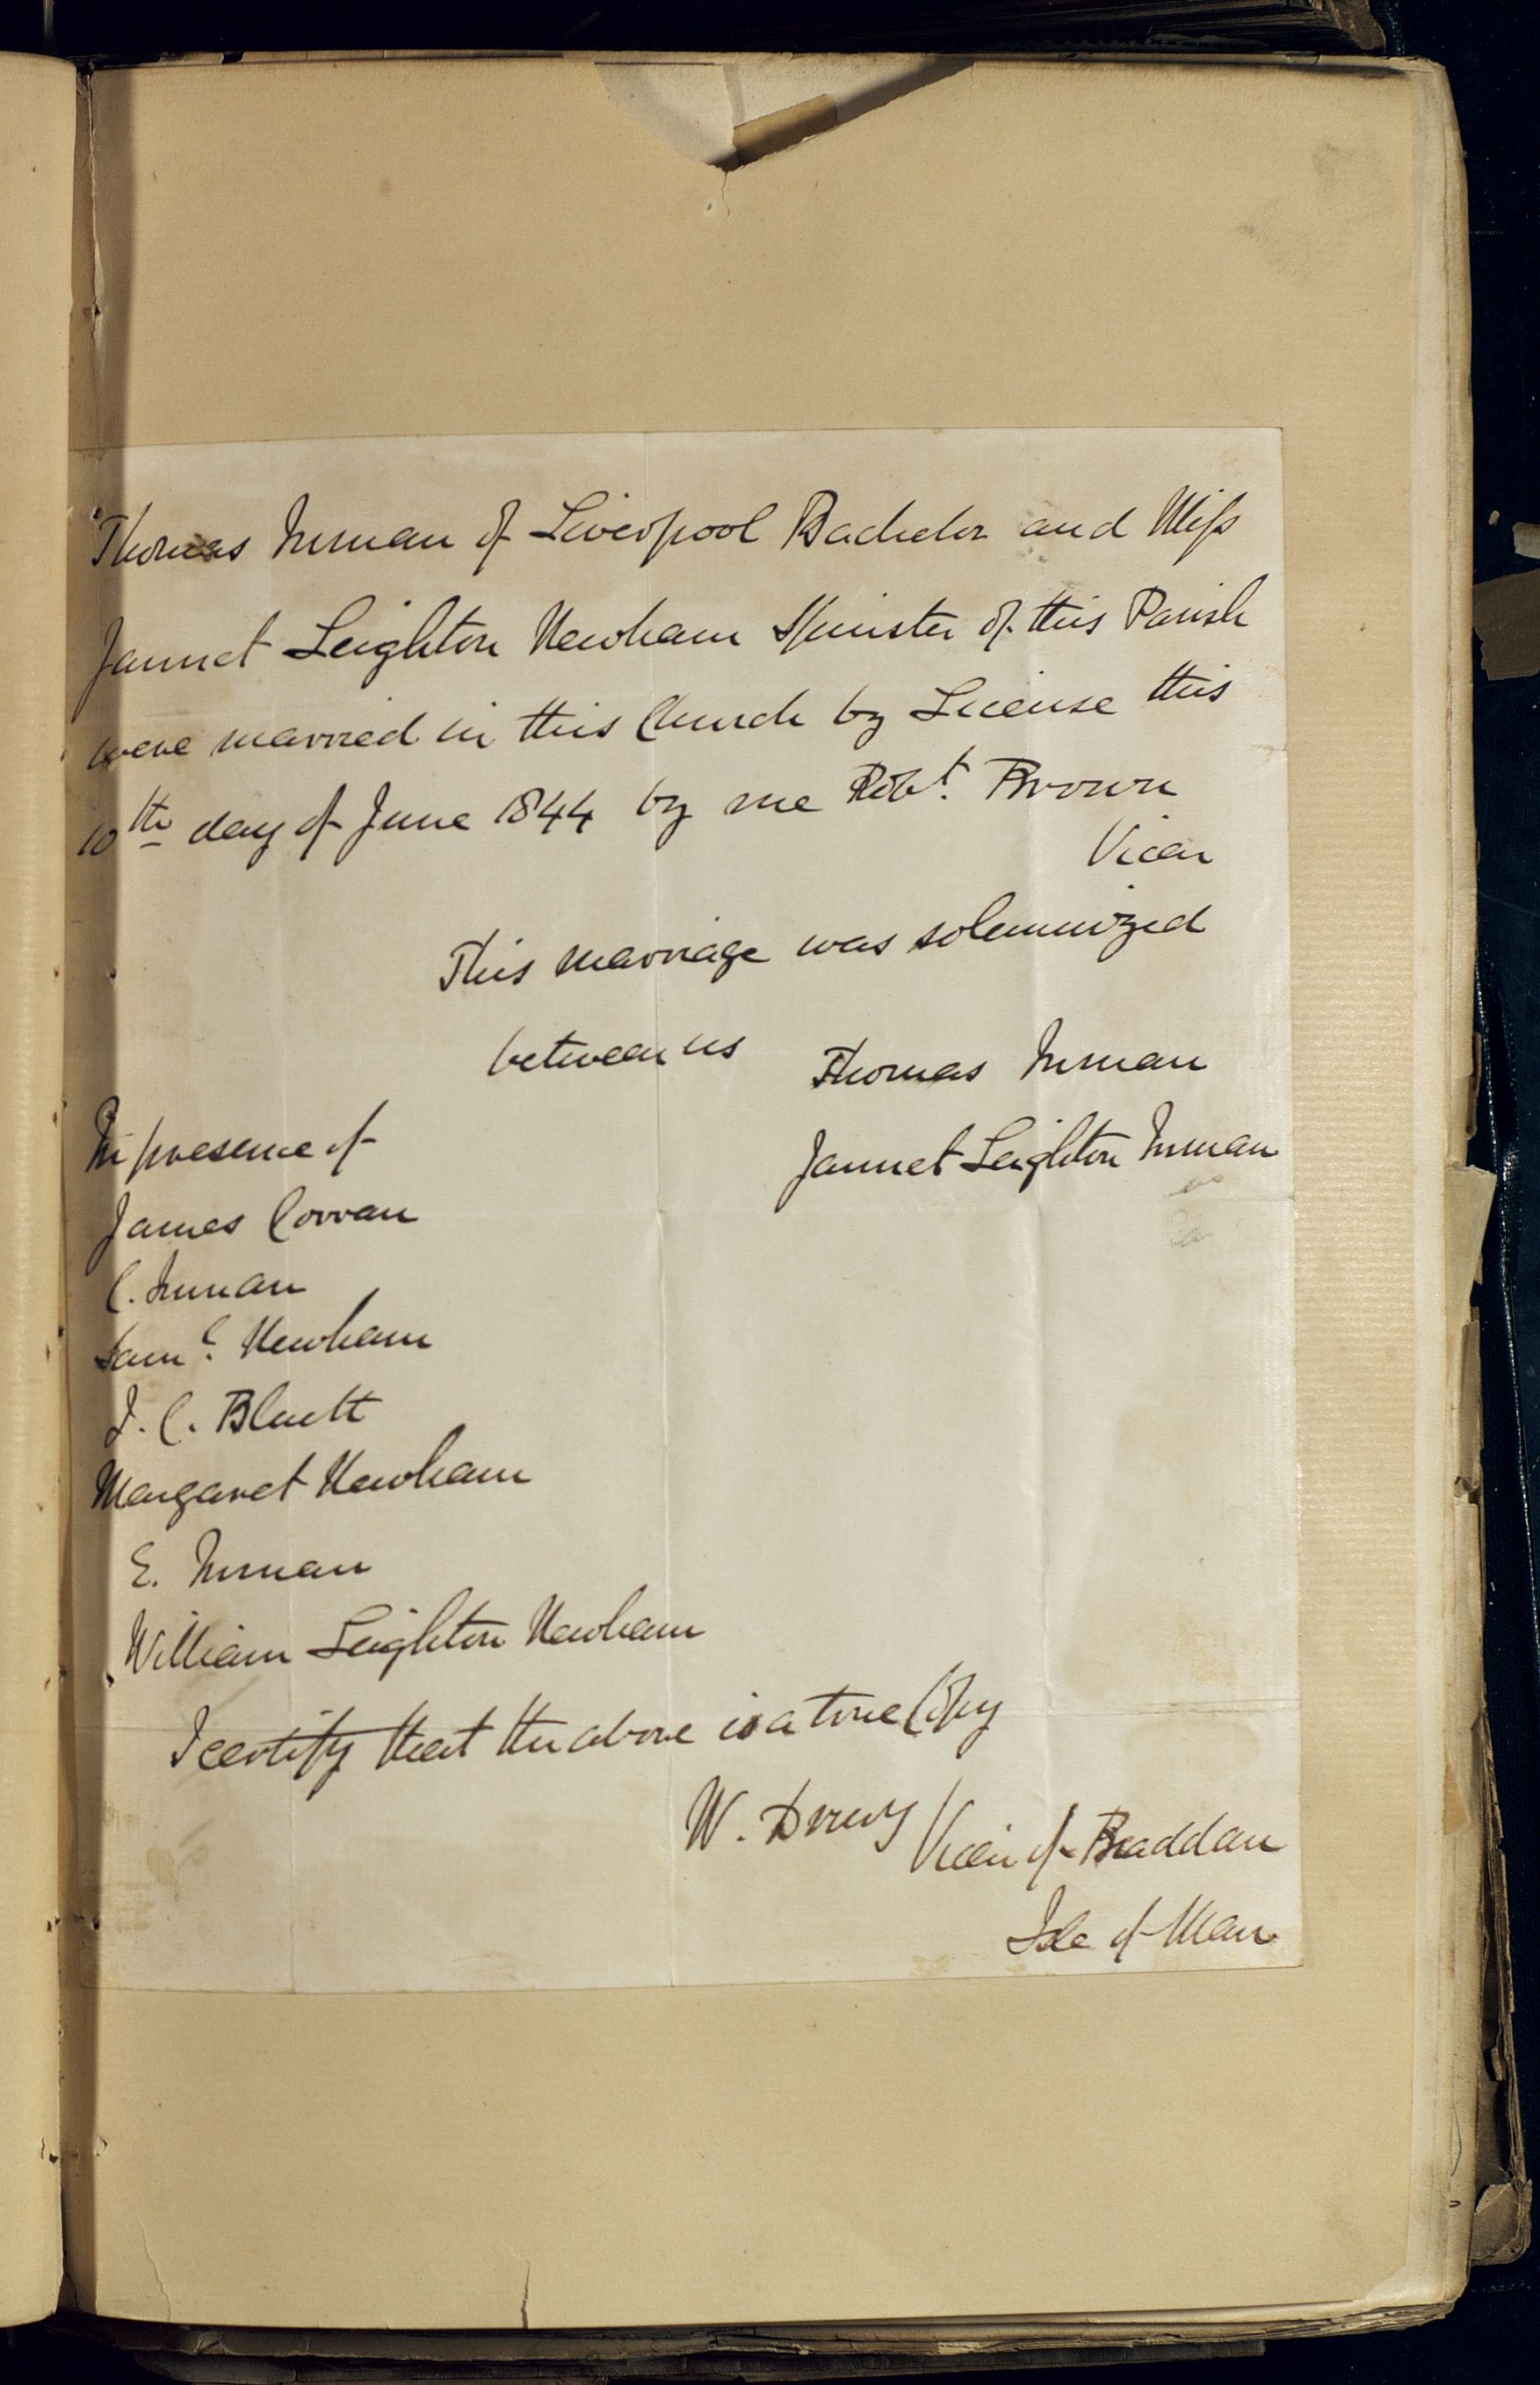 Thomas Inman of Liverpool Bachelor and Miss
Jannet Leighton Newham Spinster of this Parish
were married in this Church by License this
10th day of June 1844 by me Robt. Brown
Vicar
This marriage was solemnized
between us Thomas Inman
Jannet Leighton Inman
In presence of
James Corran
C. Inman
Saml. Newham
J. C. Bluett
Margaret Newham
E. Inman
William Leighton Newham
I certify that the above is a true Copy
W. Drury Vicar of Braddan
Isle of Man